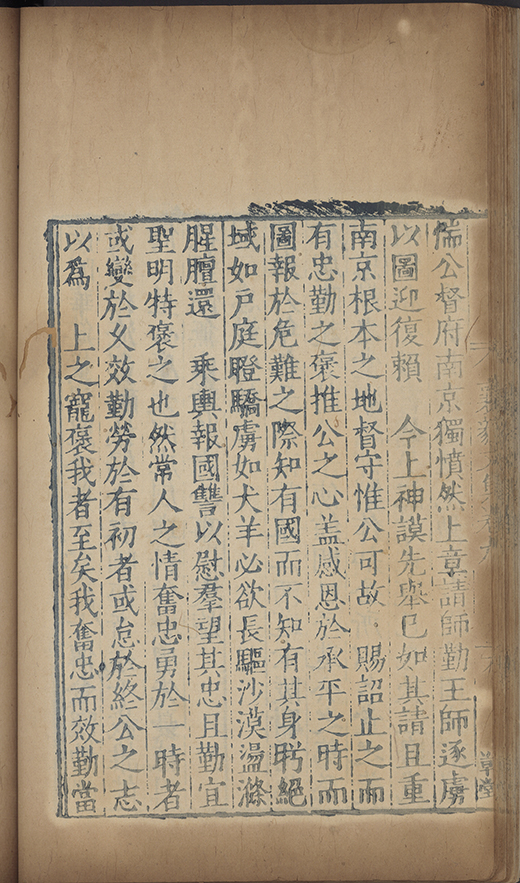 惴公督府南京獨憤然上章請師勤王師逐虜
以圖迎復賴　今上神謨先舉已如其請且重
南京根本之地督守惟公可故　賜詔止之而
有忠勤之褒推公之心盖感恩於承平之時而
圖報於危難之際知有國而不知有其身眎絕
域如戶庭瞪驕虜如犬羊必欲長驅沙漠盪滌
腥膻還　乘輿報國讐以慰羣望其忠且勤宜
聖明特褒之也然常人之情奮忠勇於一時者
或變於久效勤勞於有初者或怠於終公之志
以爲　上之寵褒我者至矣我奮忠而效勤當